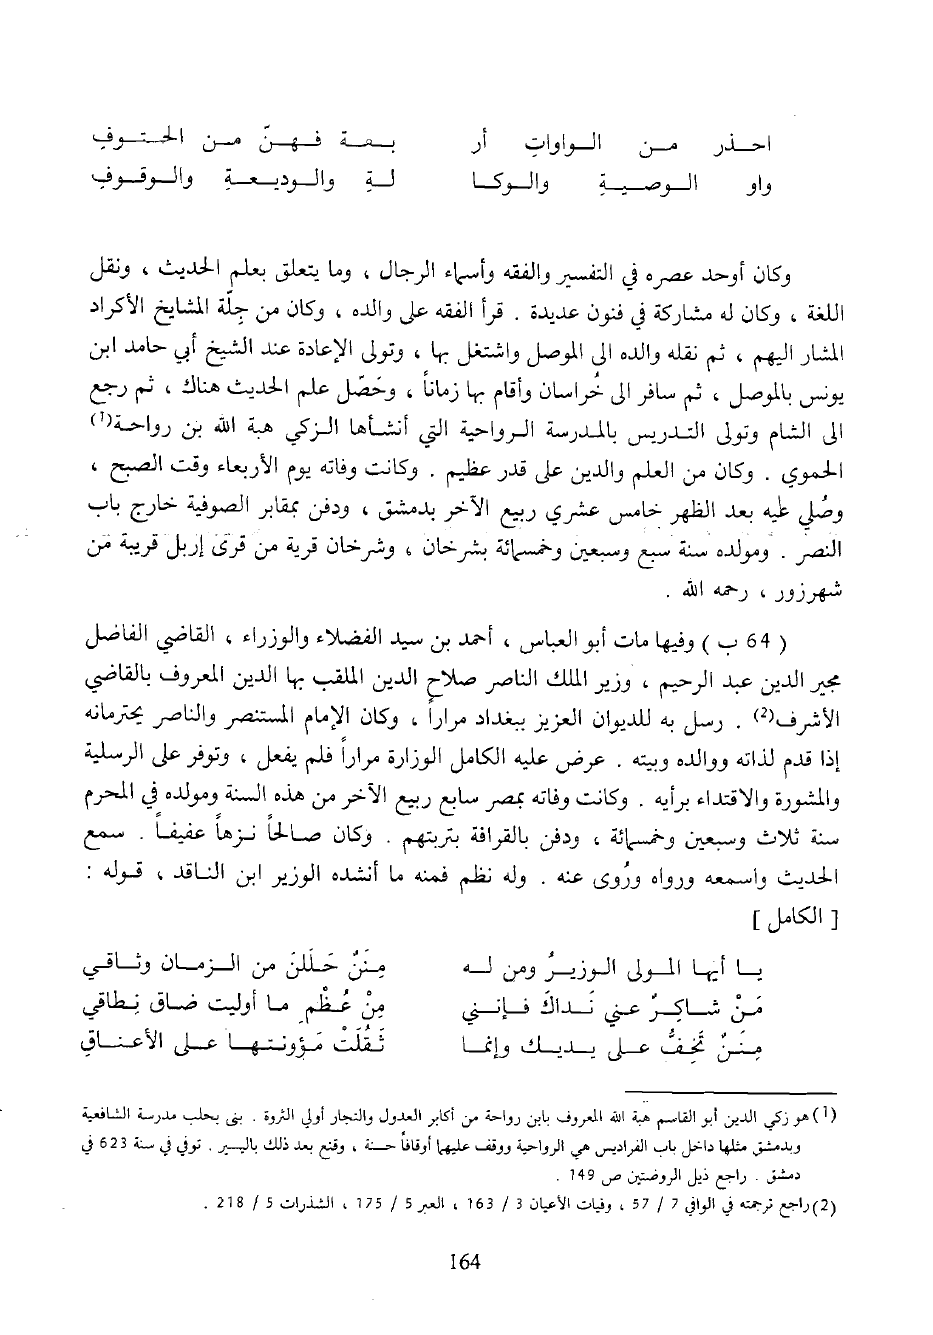 احـــذر مـــن الـــواوات أر بـعـة فـهـنّ مـن الحـتـوفِ
واو الـوصـيـةِ والـوكـا لـةِ والـوديـعـةِ والـوقـوفِ
وكان أوحد عصره في التفسير والفقه وأسماء الرجال ، وما يتعلق بعلم الحديث ، ونقل
اللغة ، وكان له مشاركة في فنون عديدة . قرأ الفقه على والده ، وكان من جِلّة المشايخ الأكراد
المشار اليهم ، ثم نقله والده الى الموصل واشتغل بها ، وتولى الإعادة عند الشيخ أبي حامد ابن
يونس بالموصل ، ثم سافر الى خُراسان وأقام بها زماناً ، وحَصّل علم الحديث هناك ، ثم رجع
الى الشام وتولى التدريس بالمدرسة الرواحية التي أنشأها الزكي هبة الله بن رواحة(1)
الحموي . وكان من العلم والدين على قدر عظيم . وكانت وفاته يوم الأربعاء وقت الصبح ،
وصُلي عليه بعد الظهر خامس عشري ربيع الآخر بدمشق ، ودفن بمقابر الصوفية خارج باب
النصر . ومولده سنة سبع وسبعين وخمسمائة بشرخان ، وشرخان قرية من قرى إربل قريبة من
شهرزور ، رحمه الله .
( 64 ب ) وفيها مات أبو العباس ، أحمد بن سيد الفضلاء والوزراء ، القاضي الفاضل
مجير الدين عبد الرحيم ، وزير الملك الناصر صلاح الدين الملقب بها الدين المعروف بالقاضي
الأشرف(2) . رسل به للديوان العزيز ببغداد مراراً ، وكان الإمام المستنصر والناصر يحترمانه
إذا قدم لذاته ووالده وبيته . عرض عليه الكامل الوزارة مراراً فلم يفعل ، وتوفر على الرسلية
والمشورة والاقتداء برأيه . وكانت وفاته بمصر سابع ربيع الآخر من هذه السنة ومولده في المحرم
سنة ثلاث وسبعين وخمسمائة ، ودفن بالقرافة بتربتهم . وكان صالحاً نزهاً عفيفاً . سمع
الحديث واسمعه ورواه ورُوى عنه . وله نظم فمنه ما أنشده الوزير ابن الناقد ، قوله :
[ الكامل ]
يـا أيها المولى الوزيرُ ومن له مِنَنٌ حَلَلنَ من الزمان وثاقي
مَنْ شاكرٌ عني نَداكَ فإنني مِنْ عُظْمِ ما أوليت ضاق نِطاقي
مِنَنٌ تَخِفُّ على يديك وإنما ثَقُلَتْ مَؤونتها على الأعناق
(1) هو زكي الدين أبو القاسم هبة الله المعروف بابن رواحة من أكابر العدول والتجار أولي الثروة . بنى بحلب مدرسة الشافعية
وبدمشق مثلها داخل باب الفراديس هي الرواحية ووقف عليها أوقافاً حسنة ، وقنع بعد ذلك باليسير . توفي في سنة 623 في
دمشق . راجع ذيل الروضتين ص 149 .
(2) راجع ترجمته في الوافي 7 / 57 ، وفيات الأعيان 3 / 163 ، العبر 5 / 175 ، الشذرات 5 / 218 .
164